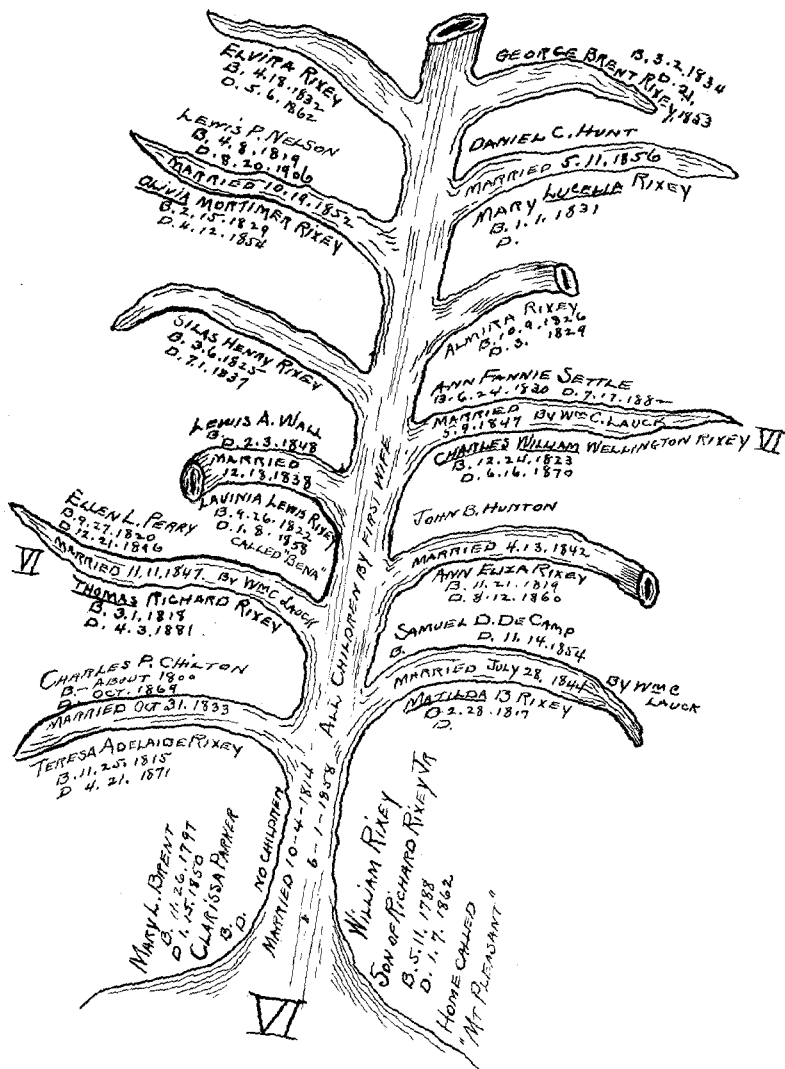 ELVIRA RIXEY
B. 4.18.1832
D. 5.6.1862
GEORGE BRENT RIXEY
B. 3.2.1834
D. 21.
1853
LEWIS P. NELSON
B. 4.8.1819
D. 8.20.1906
MARRIED 10.19.1852
OLIVIA MORTIMER RIXEY
B. 2.15.1829
D. 4.12.1854
DANIEL C. HUNT
MARRIED 5.11.1856
MARY LUCELIA RIXEY
B. 1.1.1831
D.
SILAS HENRY RIXEY
B. 3.6.1825
D. 7.1.1837
ALMIRA RIXEY
B. 10.9.1826
D. 3. 1829
ANN FANNIE SETTLE
B. 6.24.1830 D. 7.17.1882
MARRIED BY WM C. LAUCK
5.9.1847
CHARLES WILLIAM WELLINGTON RIXEY VI
B. 12.24.1823
D. 6.16.1870
LEWIS A. WALL
B.
D. 2.3.1848
MARRIED
12.18.1838
LAVINIA LEWIS RIXEY
B. 9.26.1822
D. 1.8.1858
CALLED "BENA"
JOHN B. HUNTON
MARRIED 4.13.1842
ANN ELIZA RIXEY
B. 11.21.1819
D. 8.12.1860
ELLEN L. PERRY
B. 9.27.1820
D. 12.21.1896
MARRIED 11.11.1847. BY WMC LAUCK
VI
THOMAS RICHARD RIXEY
B. 3.1.1818
D. 4.3.1881.
SAMUEL D. DE CAMP
B. D. 11.14.1854
MARRIED JULY 28, 1844 BY WMC
LAUCK
MATILDA B RIXEY
B 2.28.1817
D.
CHARLES P. CHILTON
B.- ABOUT 1800
D.- OCT. 1869
MARRIED OCT 31. 1833
TERESA ADELAIDE RIXEY
B. 11.25.1815
D 4.21.1871
ALL CHILDREN BY FIRST WIFE
MARY L. BRENT
B. 11.26.1797
D 1.15.1850
CLARISSA PARKER
B.
D. NO CHILDREN
MARRIED 10-4-1814
& 6-1-1858
WILLIAM RIXEY
SON OF RICHARD RIXEY JR
B. 5.11.1788
D. 1.7.1862
HOME CALLED
"MT PLEASANT"
VI